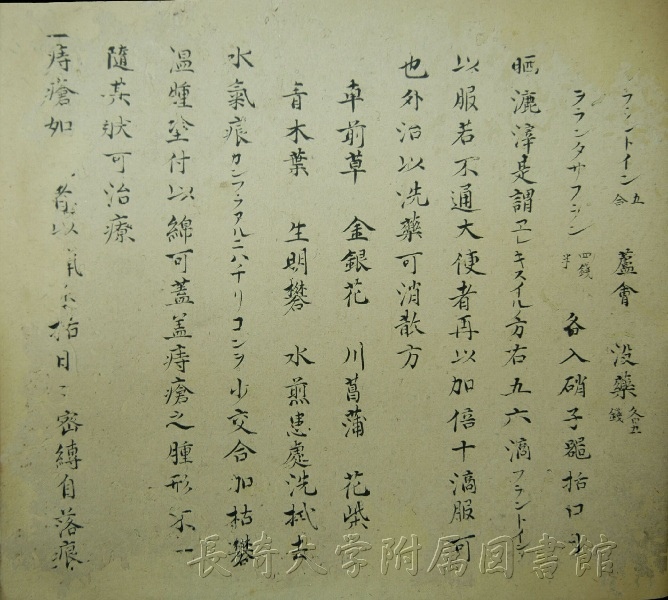 フラントイン 五合 蘆會 没藥 各五錢
ヲランダサフラン 四錢半 各入硝子罌括口
晒漉滓是謂ヱレキスイル方右五六滴フラントイン
以服若不通大便者再以加倍十滴服可
也外治以洗藥可消散方
車前草 金銀花 川菖蒲 花柴
青木葉 生明礬 水煎患處洗拭去
水氣痕カンフラアルニハチリコンヲ少交合加枯礬
温腫塗付以綿可蓋盖痔瘡之腫形不一
隨其狀可治療
一痔瘡如 以 括日々密縛自落痕
長崎大学附属図書館